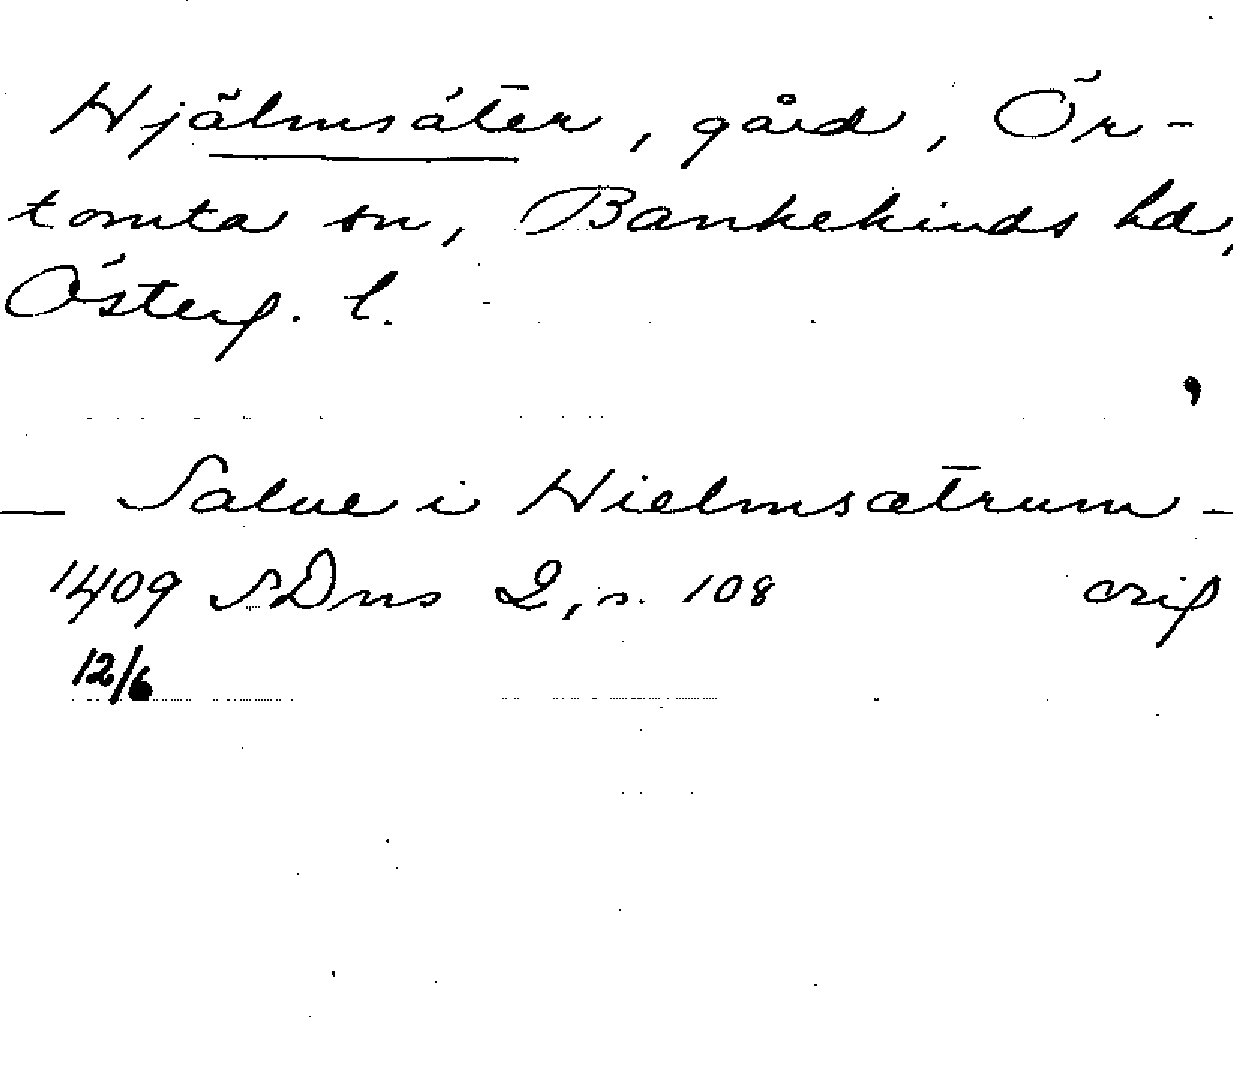 Hjälmsäter, gård, Ör-
tomta sn, Bankekinds hd,
Österg. l.
— Salue i Hielmsætrum –
1409 SDns 2, s. 108 orig
12/6